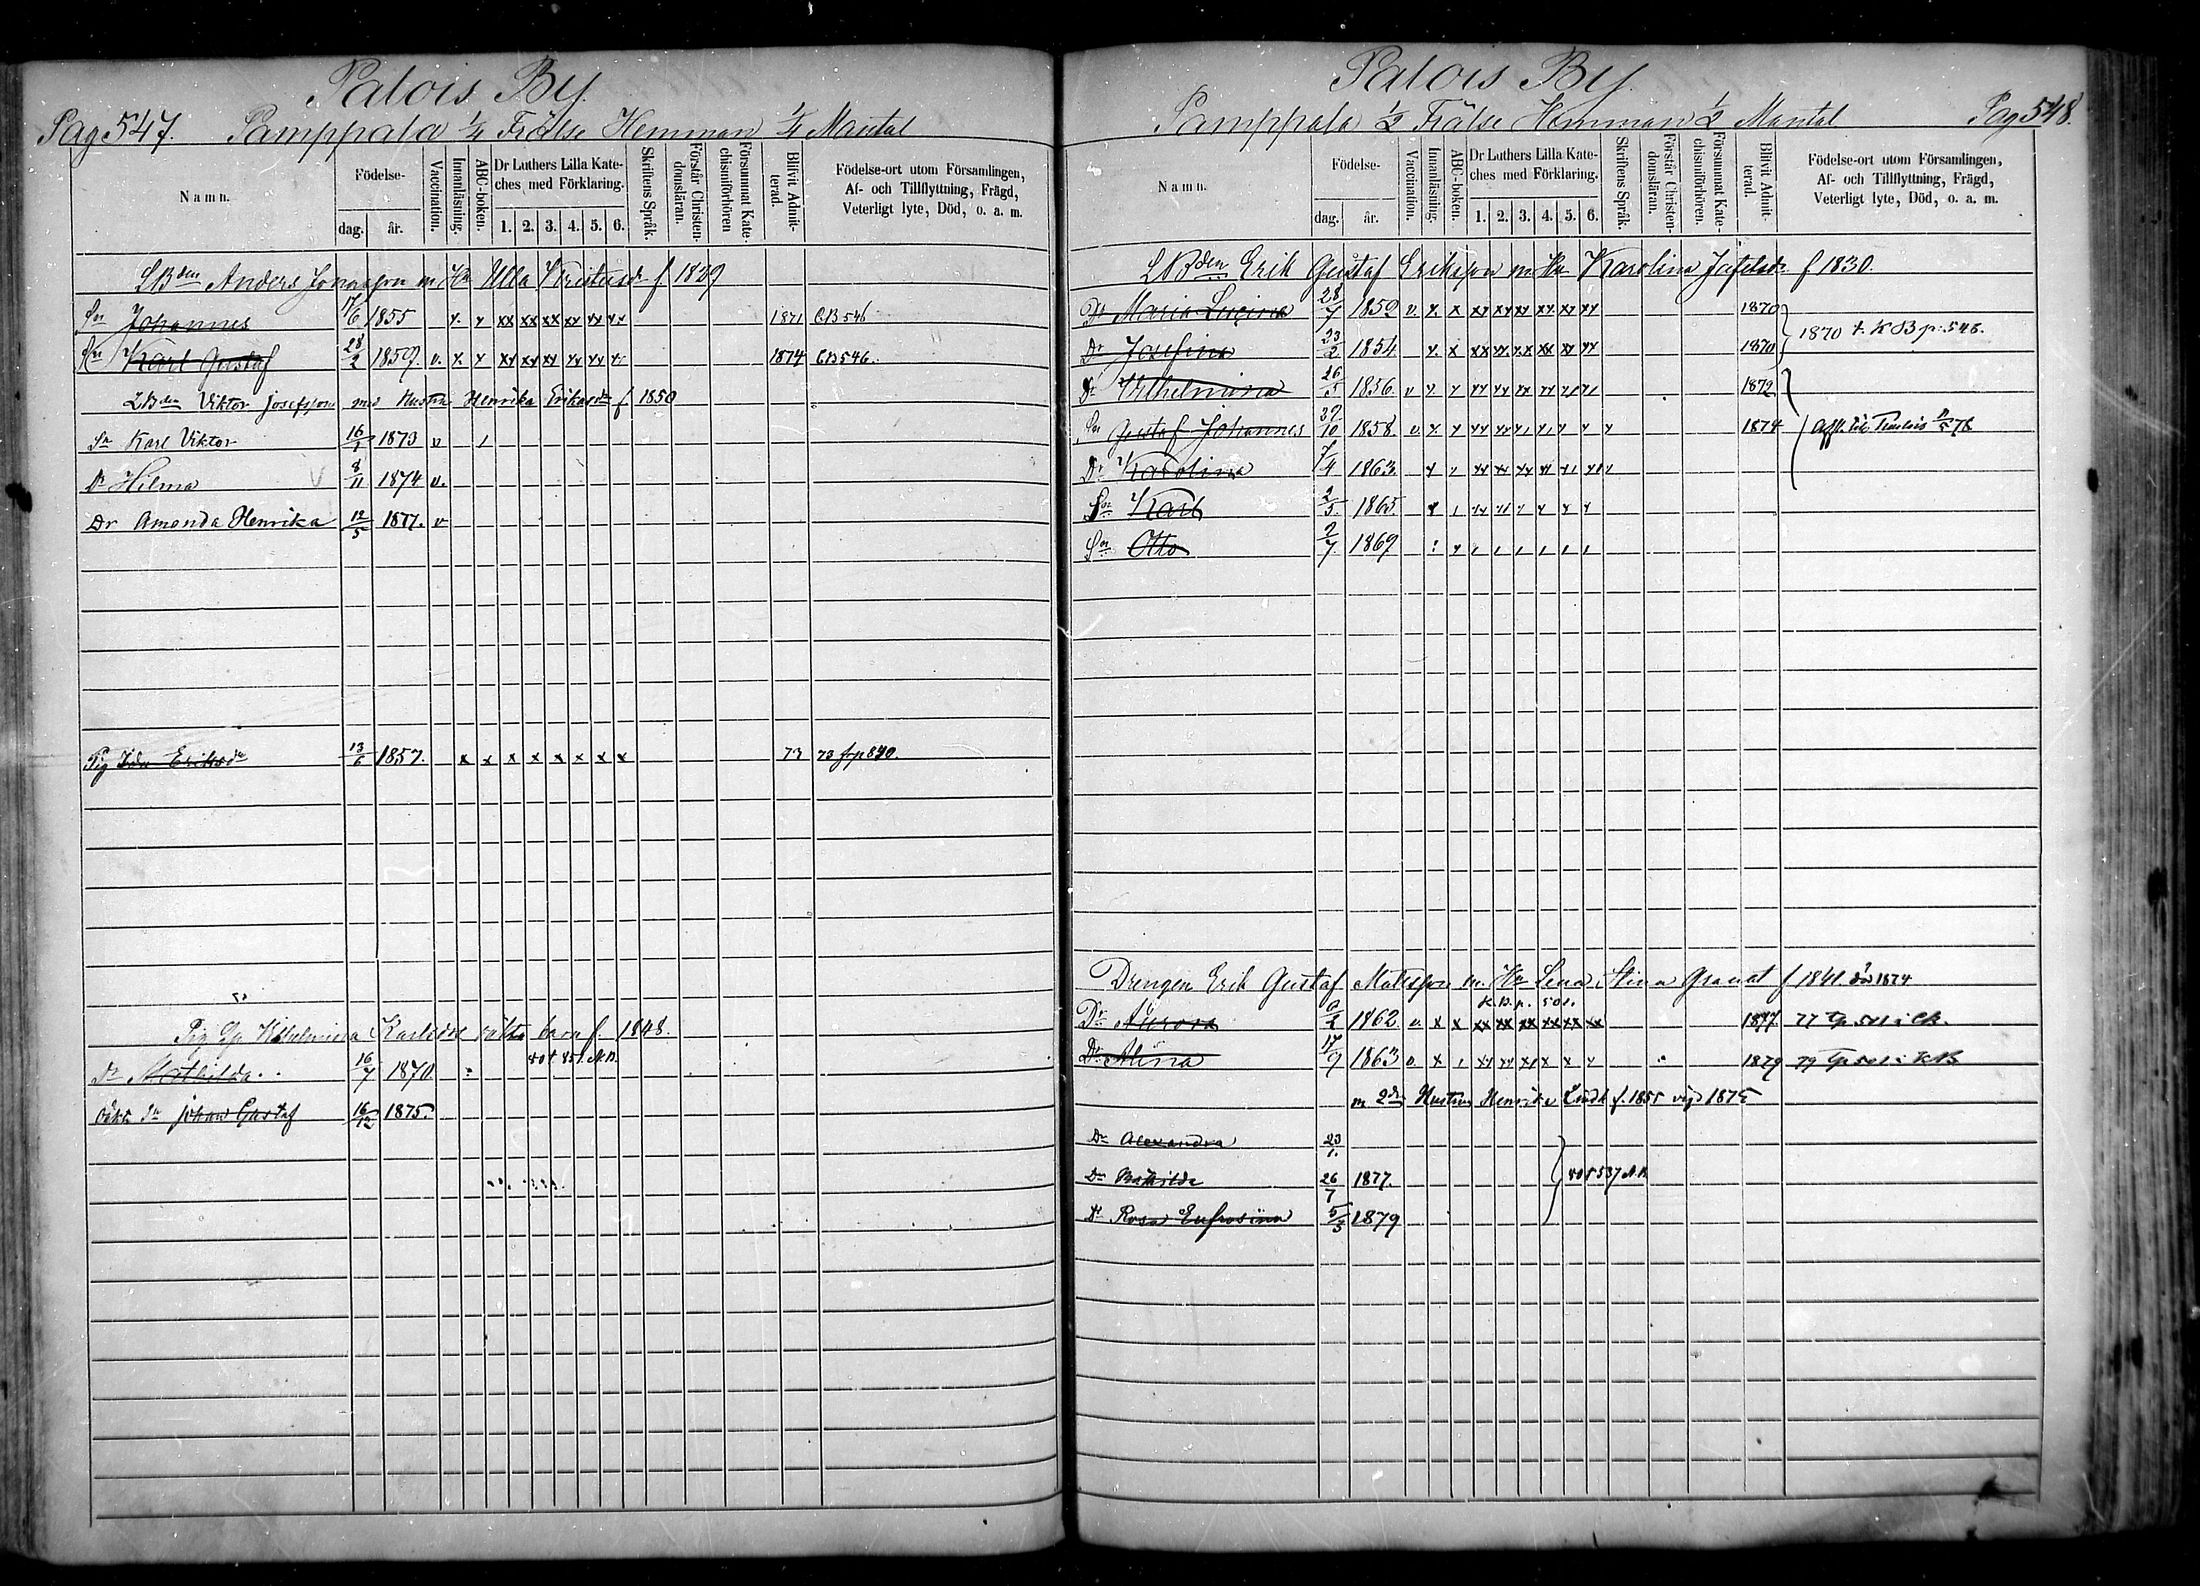 Palois By.
Pag 547. Pamppala 1/4 Frälse Hemman 1/4 Mantal
Namn.
Födelse-
dag. år.
Vaccination.
Innanläsning.
ABC-boken.
Dr Luthers Lilla Kate-
ches med Förklaring.
1. 2. 3. 4. 5. 6.
Skriftens Språk.
Förstår Christen-
domsläran.
Försummat Kate-
chismiförhören
Blifvit Admit-
terad.
Födelse-ort utom Församlingen,
Af- och Tillflyttning, Frägd,
Veterligt lyte, Död, o. a. m.
LBden Anders Jonasson m Hu Ulla Kristusdr f 1829
Sn Johannes 17/6 1855 x. x xx xx xx xx xx xx 1871 CB 546
Sn Karl Gustaf 28/2 1859. v. x. x xx xx xx xx xx xx 1874 CB 546.
LBden Viktor Josefsson med Hustru Henrika Eriksdr f 1850
Sn Karl Viktor 16/1 1873 v
Dr Hilma 8/11 1874 v.
Dr Amanda Henrika 12/5 1877. v
Pig Ida Eriksdr 13/6 1857. x x x x x x x x 73 73 frp 840.
Pig Eg Wilhelmina Karlsdrs barn f. 1848.
Dr Mathilda 16/7 1870
Sn Johan Gustaf 16/12 1875.
Palois By.
Pamppala 1/2 Frälse Hemman 1/2 Mantal Pag 548.
Namn.
Födelse-
dag. år.
Vaccination.
Innanläsning.
ABC-boken.
Dr Luthers Lilla Kate-
ches med Förklaring.
1. 2. 3. 4. 5. 6.
Skriftens Språk.
Förstår Christen-
domsläran.
Försummat Kate-
chismiförhören.
Blifvit Admit-
terad.
Födelse-ort utom Församlingen,
Af- och Tillflyttning, Frägd,
Veterligt lyte, Död, o. a. m.
LBden Erik Gustaf Eriksson m Hu Karolina f 1830.
Dr Maria 28/7 1850 v. x. x xx xx xx xx xx xx 1870
1870 t. KB p. 548.
Dr Josefina 23/2 1854 x. x xx xx xx xx xx xx 1870
Dr Vilhelmina 26/5 1856. v x. x xx xx xx xx xx xx 1872
Sn Gustaf Johannes 29/10 1858. v. x x 1874 Afft. till 78
Dr Karolina 7/4 1863
Sn Karl 2/5. 1865
Sn Otto 2/7. 1869
Drengen Erik Gustaf Matsson m. Hu Lena Stina Granat f 1841 död 1874
K.B.p. 501.
Dr Aurora 9/2 1862. v. x x xx xx xx xx xx xx 1877
Dr Alina 17/9 1863 v. x 1879
m 2dra Hustru Henrika Lindh f. 1855 vigd 1875
Dr Alexandra 23/1.
Dr Mathilda 26/7 1877. 80 t 537 N.B.
Dr Rosa Eufrosina 5/3 1879